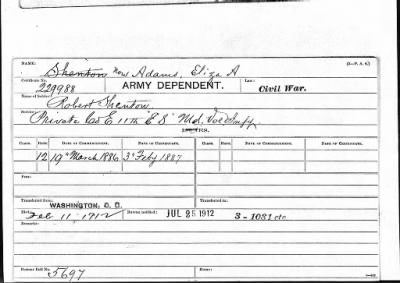 NAME: (3-P. A. G.)
Shenton now Adams, Eliza A
Certificate No. Law:
229988 ARMY DEPENDENT. Civil War.
Name of Soldier:
Robert Shenton
Service:
Private Co E 11th E S Md. Vol Inf
Class. Rate. Date of Commencement. Date of Commencement. Class. Rate. Date of Commencement. Date of Commencement.
12 19" March 1886 3" Feby 1887
Fees:
Transferred from Transferred to
WASHINGTON, D. C.
Died: Feb 11-1912 Bureau notified: JUL 25 1912 3-1081 etc
Remarks:
Former Roll No.
5697